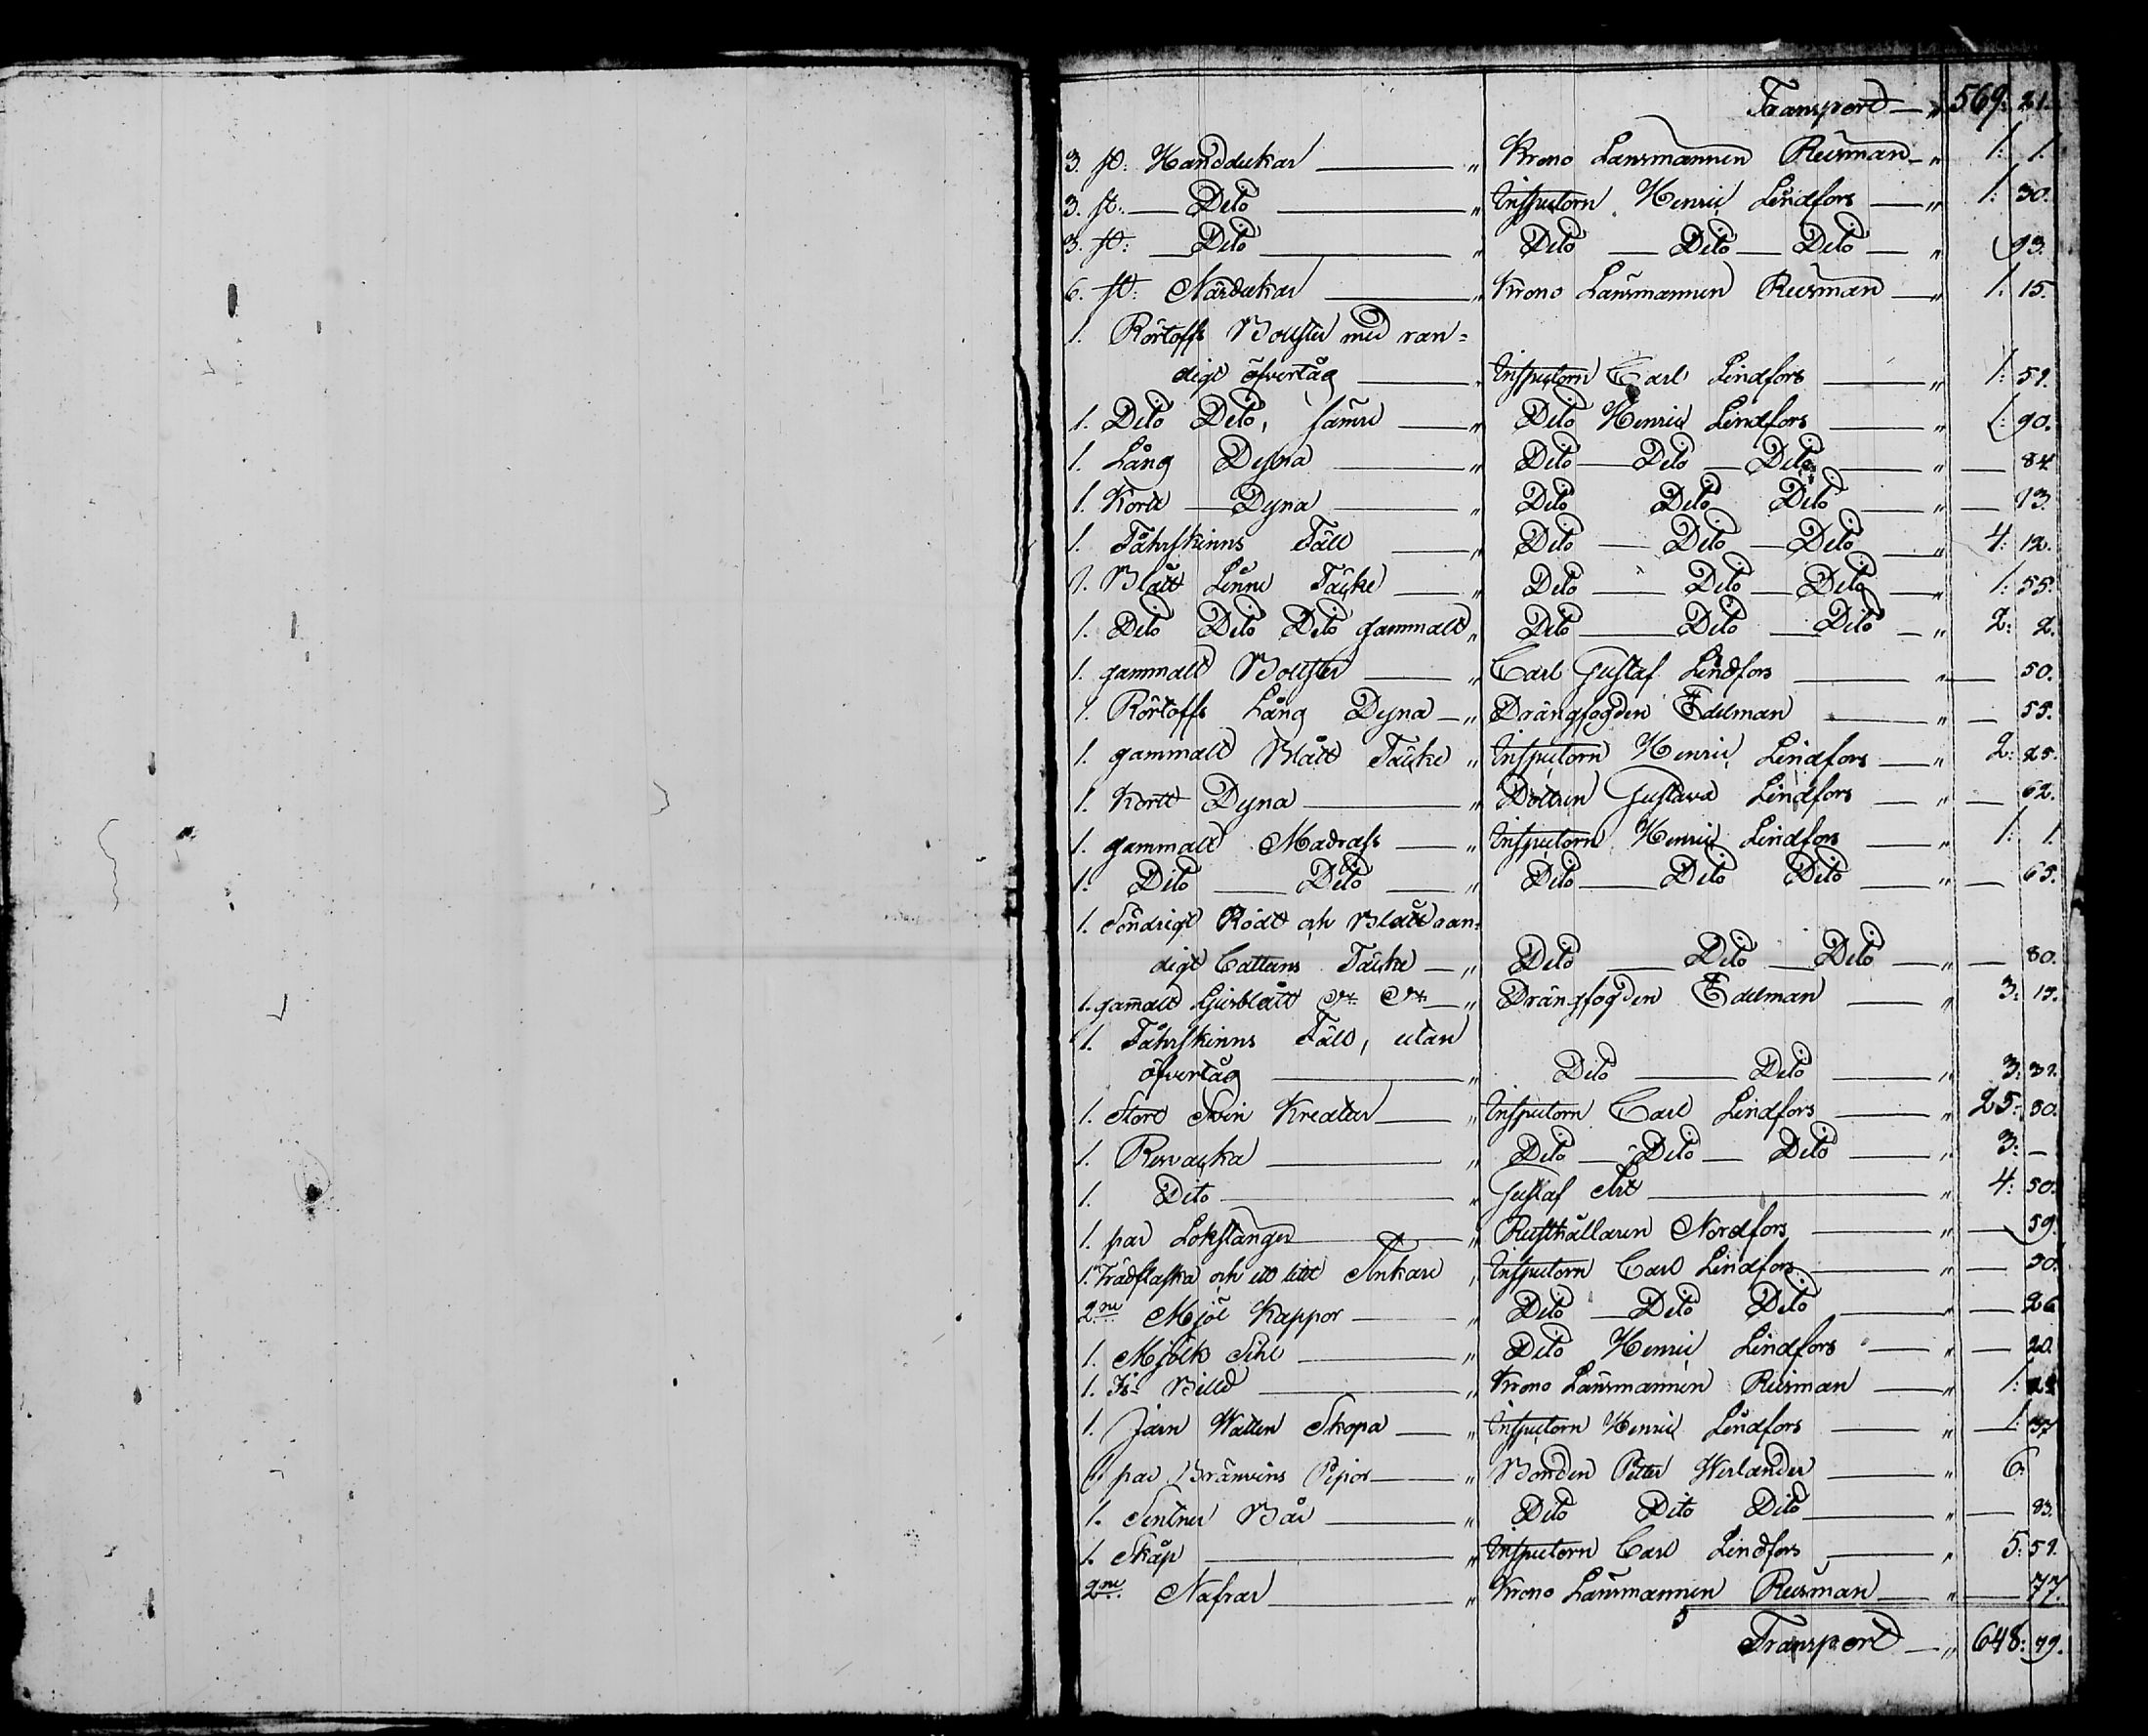 Transport — „ 569: 21.
3. st: Handdukar — „ Krono Länsmannen Reusman — „ 1: 1.
3. st: — Dito — „ Inspectorn Henric Lindfors — „ 1: 30.
3. st: — Dito — „ Dito — Dito — Dito — „ 93.
6. st: Närdukar — „ Krono Länsmannen Reusman — „ 1: 15.
1. Rörtoffs Bolster med ran=
digt öfvertåg — „ Inspectorn Carl Lindfors — „ 1: 51.
1. Dito Dito, sämre — „ Dito Henric Lindfors — „ 1: 90.
1. Lång Dyna — „ Dito — Dito — Dito — „ — 84.
1. Kort — Dyna — „ Dito Dito Dito — „ — 13.
1. Fåhrskinns Fäll — „ Dito — Dito — Dito — „ 4: 12.
1. Blått Linne Täcke — „ Dito — Dito — Dito — „ 1: 55.
1. Dito Dito Dito gammalt „ Dito — Dito — Dito — „ 2: 2.
1. gammalt Bolster — „ Carl Gustaf Lindfors — „ — 50.
1. Rörtoffs Lång Dyna — „ Drängfogden Edelman — „ — 55.
1. gammalt Blått Täcke „ Inspectorn Henric Lindfors — „ 2: 25.
1. Kortt Dyna — „ Dottren Gustava Lindfors — „ — 62.
1. gammalt Madrass — „ Inspectorn Henric Lindfors — „ 1: 1.
1. Dito — Dito — „ Dito — Dito Dito — „ — 65.
1. Söndrigt Rödt och Blått ran=
digt Cattuns Täcke — „ Dito — Dito — Dito — „ — 80.
1. gam̄alt Ljusblått — „ Drängfogden Edelman — „ 3: 15.
1. Fåhrskinns Fäll, utan
öfvertåg — „ Dito — Dito — „ 3: 31.
1. Stort Svin Kreatur — „ Inspectorn Carl Lindfors — „ 25: 30.
1. Resväska — „ Dito — Dito — Dito — „ 3: —
1. Dito — „ Gustaf — „ 4: 50.
1. par Lokstänger — „ Rusthållaren Nordfors — „ — 59.
1. Trädflaska och ett litet Ankare „ Inspectorn Carl Lindfors — „ — 30.
2ne Mjöl Kappor — „ Dito — Dito Dito — „ — 26
1. Mjölk Sihl — „ Dito Henric Lindfors — „ — 20.
1. Is Bill — „ Krono Länsmannen Reusman — „ 1:
1. Järn Watten Skopa — „ Inspectorn Henric Lindfors — „ — 37
1. par Bränvins Pipor — „ Bonden Petter Werlander — „ 6:
1. Sentner Bår — „ Dito Dito Dito — „ — 83.
1. Skåp — „ Inspectorn Carl Lindfors — „ 5: 51.
2ne Nafrar — „ Krono Länsmannen Reusman — „ — 77.
Transport — „ 648: 79.